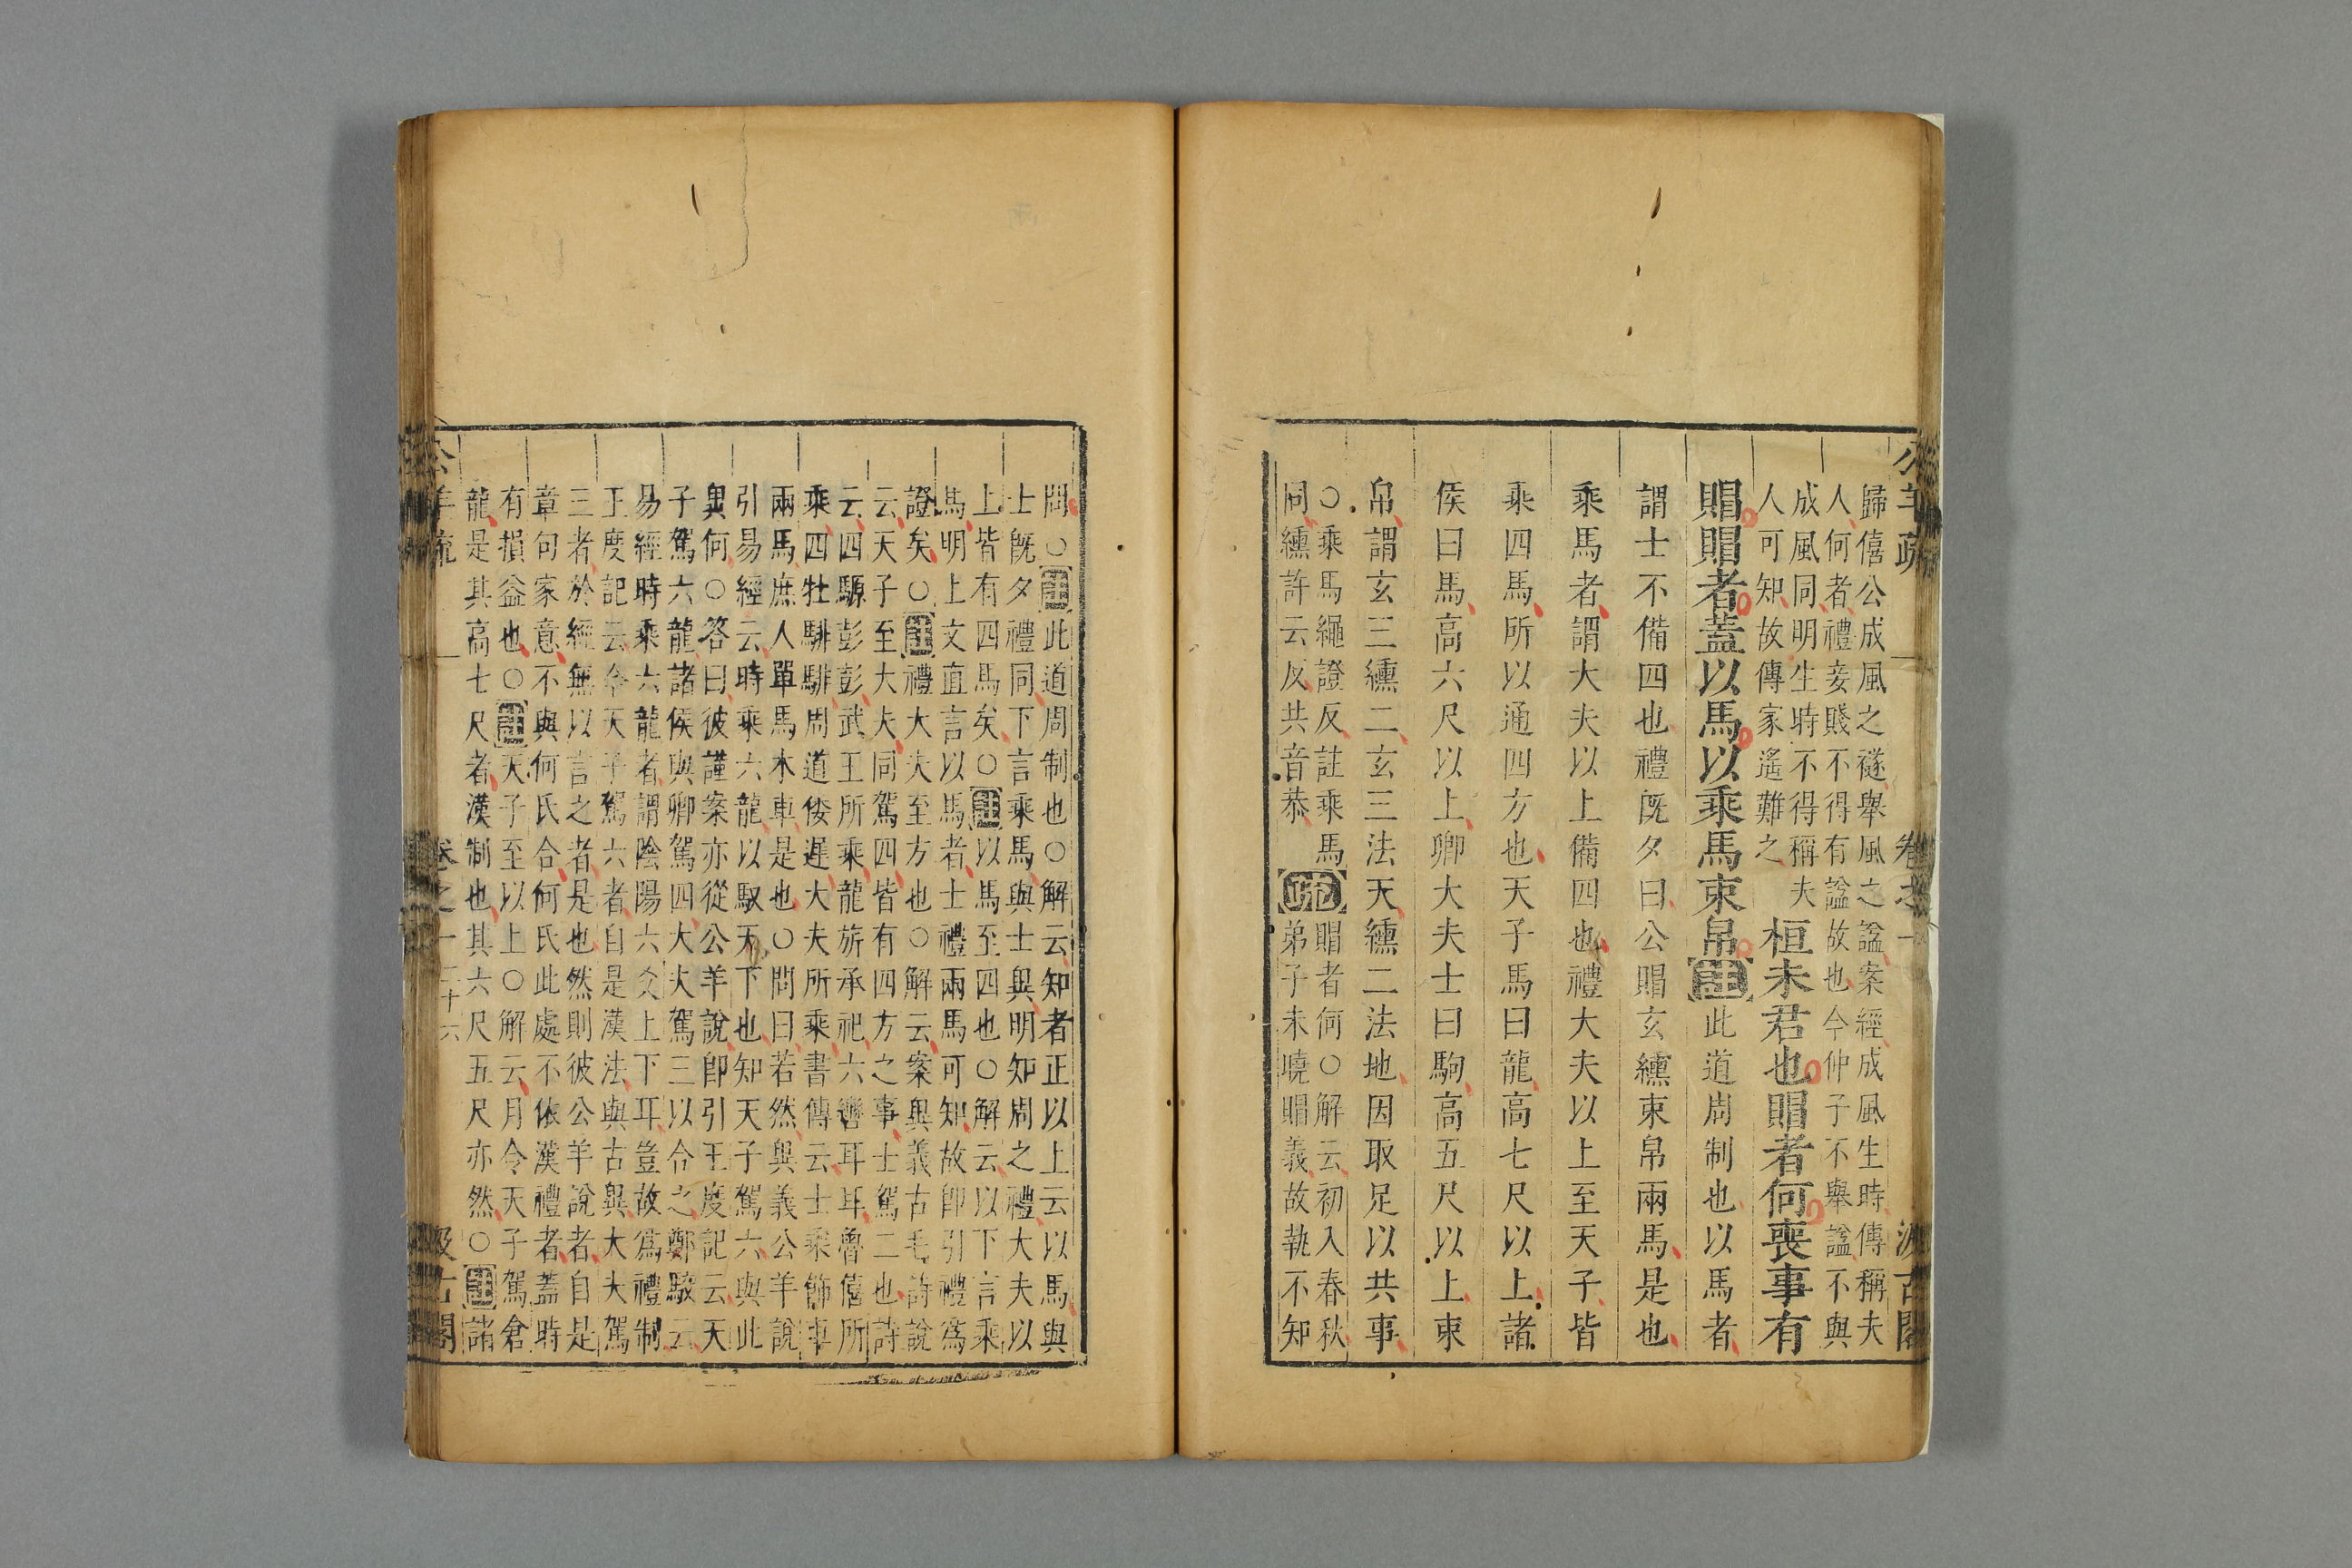 公羊疏 卷之一 汲古閣
歸僖公成風之襚舉風之諡案經成風生時傳稱夫
人何者禮妾賤不得有諡故也今仲子不舉諡不與
成風同明生時不得稱夫
人可知故傳家遙難之
桓未君也賵者何喪事有
賵賵者蓋以馬以乘馬束帛註此道周制也以馬者
謂士不備四也禮旣夕曰公賵玄纁束帛兩馬是也
乘馬者謂大夫以上備四也禮大夫以上至天子皆
乘四馬所以通四方也天子馬曰龍高七尺以上諸
侯曰馬高六尺以上卿大夫士曰駒高五尺以上束
帛謂玄三纁二玄三法天纁二法地因取足以共事
○乘馬繩證反註乘馬
同纁許云反共音恭
疏賵者何○解云初入春秋
弟子未曉賵義故執不知
問○註此道周制也○解云知者正以上云以馬與
士旣夕禮同下言乘馬與士與明知周之禮大夫以
上皆有四馬矣○註以馬至四也○解云以下言乘
馬明上文直言以馬者士禮兩馬可知故卽引禮爲
證矣○註禮大夫至方也○解云案異義古毛詩說
云天子至大夫同駕四皆有四方之事士駕二也詩
云四騵彭彭武王所乘龍旂承祀六轡耳耳魯僖所
乘四牡騑騑周道倭遲大夫所乘書傳云士乘飾車
兩馬庶人單馬木車是也○問曰若然與義公羊說
引易經云時乘六龍以馭天下也知天子駕六與此
異何○答曰彼謹案亦從公羊說卽引王度記云天
子駕六龍諸侯與卿駕四大夫駕三以合之鄭駁云
易經時乘六龍者謂陰陽六爻上下耳豈故爲禮制
王度記云今天子駕六者自是漢法與古異大夫駕
三者於經無以言之者是也然則彼公羊說者自是
章句家意不與何氏合何氏此處不依漢禮者蓋時
有損益也○註天子至以上○解云月令天子駕倉
龍是其高七尺者漢制也其六尺五尺亦然○註諸
公羊疏 卷之一 二十六 汲古閣